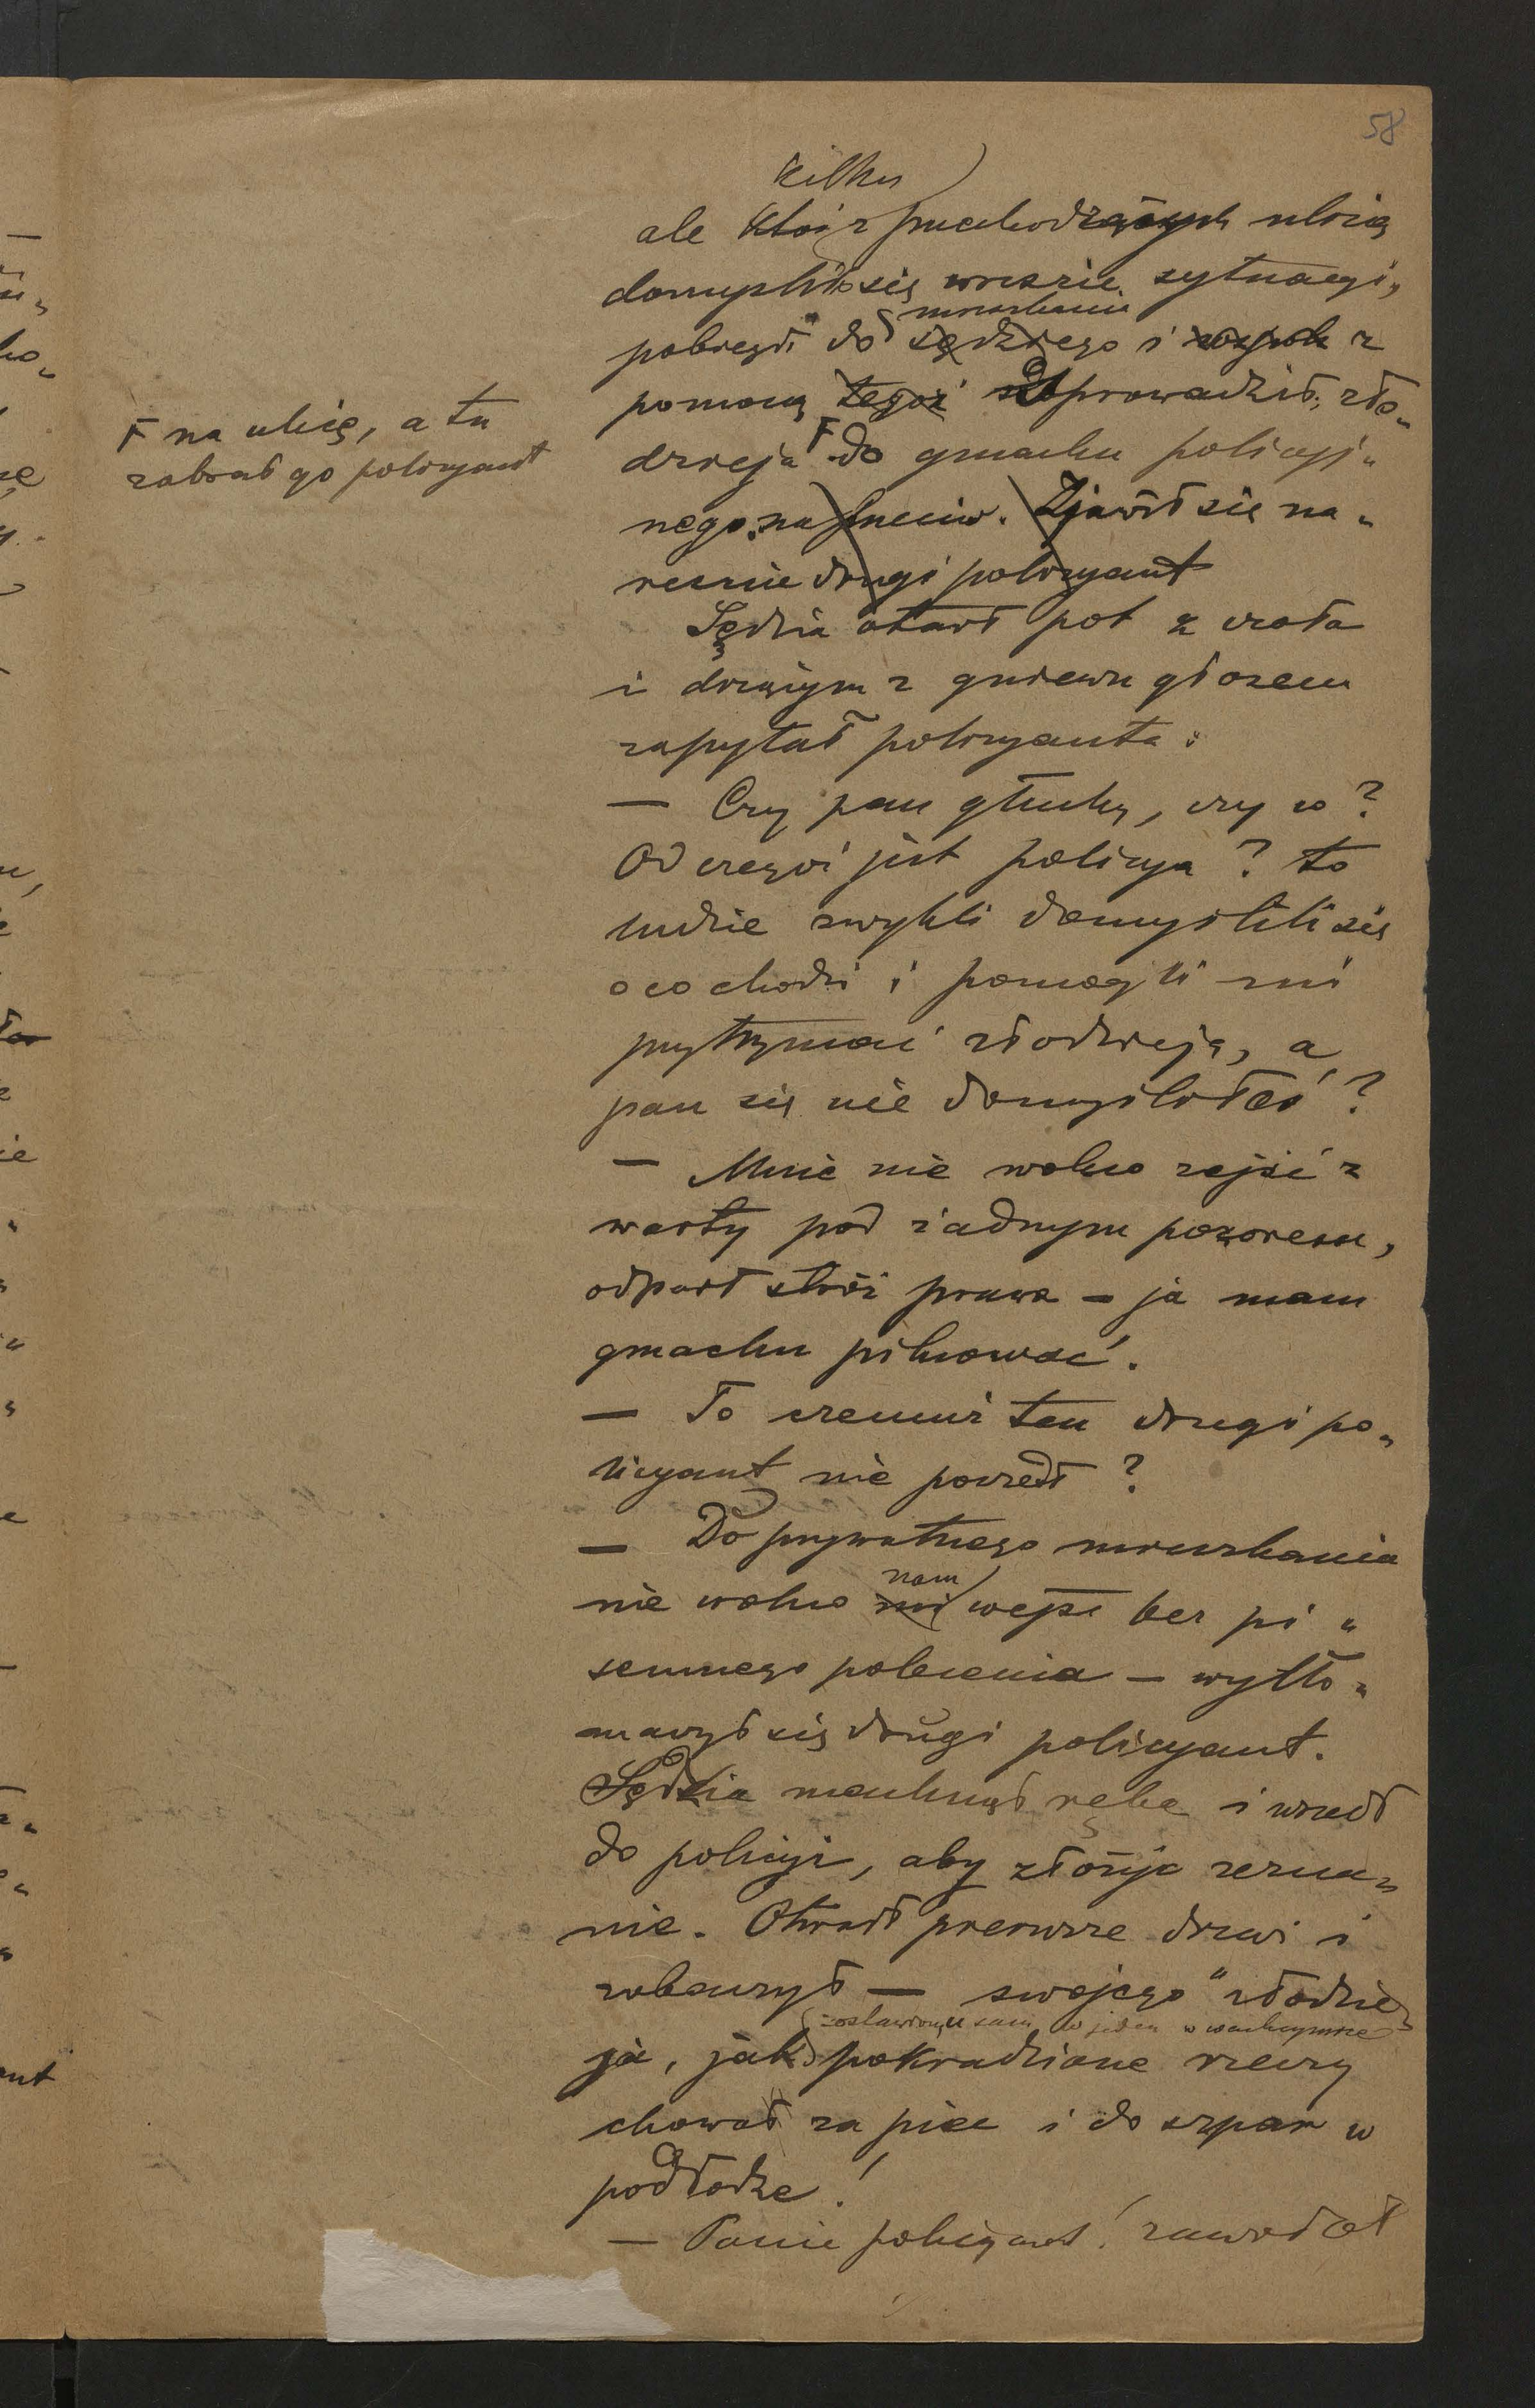 58
kilku
ale ktoś z przechodzących ulicą
domyślił się wreszcie sytuacyi,
mieszkania
pobiegł do sędziego i z
pomocą tegoż odprowadził zło„
dzieja do gmachu policyj„
Ꞙ na ulicę, a tu
zabrał go policyant
nego na przeciw. Zjawił się na„
reszcie drugi policyant
Sędzia otarł pot z czoła
i drżącym z gniewu głosem
zapytał policyanta:
— Czy pan głuchy, czy co?
Od czegoż jest policya? to
ludzie zwykli domyślili się
o co chodzi i pomogli mi
przytrzymać złodzieja, a
pan się nie domyśliłeś?
— Mnie nie wolno zejść z
warty pod żadnym pozorem,
odparł stróż prawa – ja mam
gmachu pilnować.
— To czemuż ten drugi po„
licyant nie poszedł?
— Do prywatnego mieszkania
nam
nie wolno mi wejść bez pi„
semnego polecenia – wytło„
maczył się drugi policyant.
Sędzia machnął ręką i wszedł
do policyi, aby złożyć zezna„
nie. Otwarł pierwsze drzwi i
zobaczył — swojego "złodzie„
zostawiony sam w jeden w wachcymrze
ja, jak pokradzione rzeczy
chował za piec i do szpar w
podłodze!
— Panie policyant! zawołał